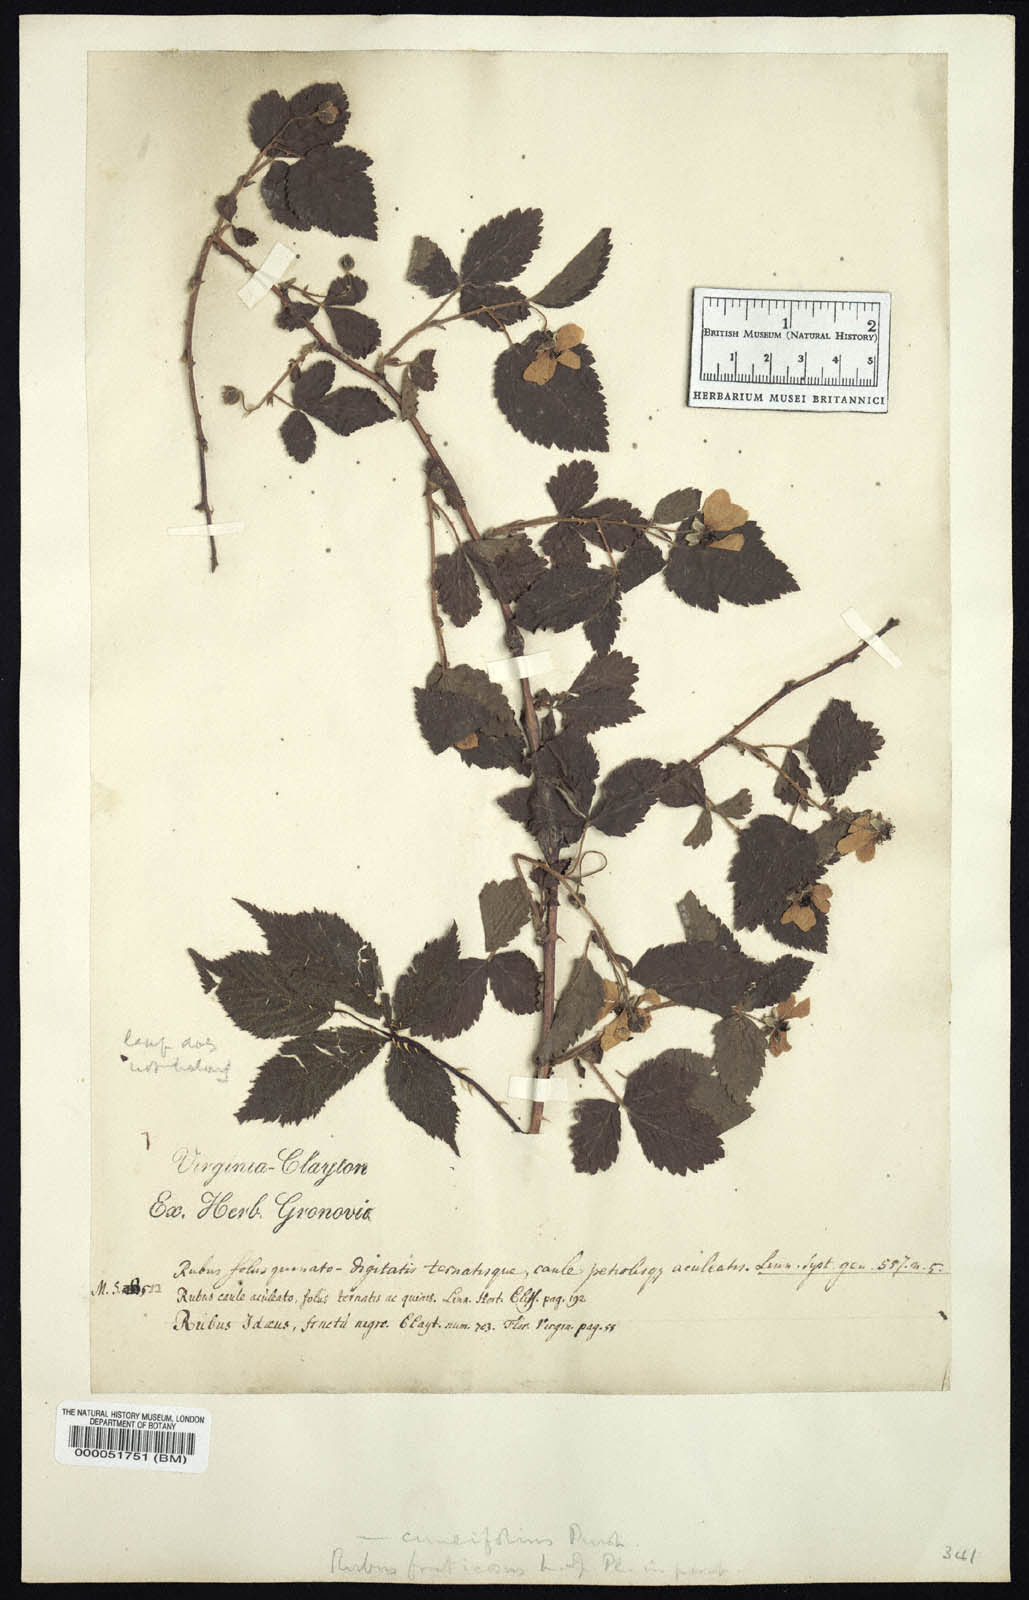 1 2
BRITISH MUSEUM (NATURAL HISTORY)
1 2 3 4 5
HERBARIUM MUSEI BRITANNICI
leaf does
not belong
Virginia-Clayton
Ex. Herb. Gronovio
Rubus foliis quinato-digitatis ternatisque, caule petiolisqȝ aculeatis. Linn. Syst. gen. 557. n. 5.
Rubus caule aculeato, foliis ternatis ac quinis. Linn. Hort. Cliff. pag. 192
Rubus Idæus, fructu nigro. Clayt. num. 703. Flor. Virgin. pag. 55
THE NATURAL HISTORY MUSEUM, LONDON
DEPARTMENT OF BOTANY
000051751 (BM)
— cuneifolius Pursh.
Rubus fruticosus L. Sp. Pl. in part.
341